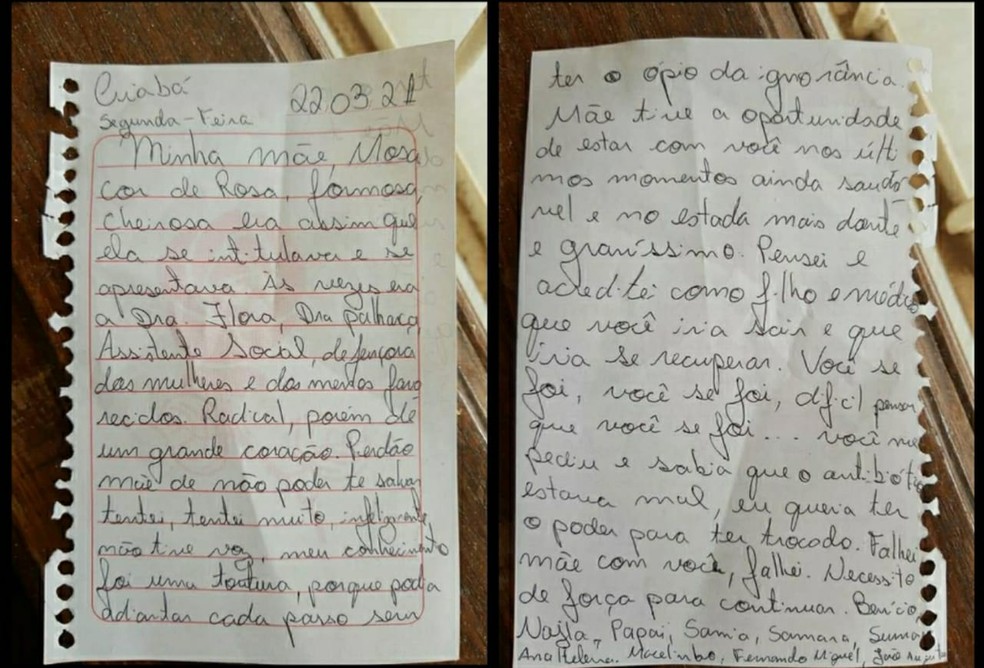 Cuiabá 22.03 21
Segunda-Feira
Minha mãe Mosa
cor de Rosa, formosa,
cheirosa era assim que
ela se intitulava e se
apresentava Às vezes era
a Dra. Flora, Dra palhaça
Assistente Social, defensora
das mulheres e dos menos favo
recidos. Radical, porém de
um grande coração. Perdão
mãe de não poder te salvar
tentei, tentei muito, infelizmente
não tive voz, meu conhecimento
foi uma tortura, porque podia
adiantar cada passo sem
ter o ópio da ignorância.
Mãe tive a oportunidade
de estar com você nos últi
mos momentos ainda saudá
vel e no estado mais doente
e gravíssimo. Pensei e
acreditei como filho e médico
que você iria sair e que
iria se recuperar. Você se
foi, você se foi, difícil pensar
que você se foi... você me
pediu e sabia que o antibióti
estava mal, eu queria ter
o poder para ter trocado. Falhei
mãe com você, falhei. Necessito
de força para continuar. Benício
Najla, Papai, Samia, Samara,
Ana Helena, Fernando Miguel, João